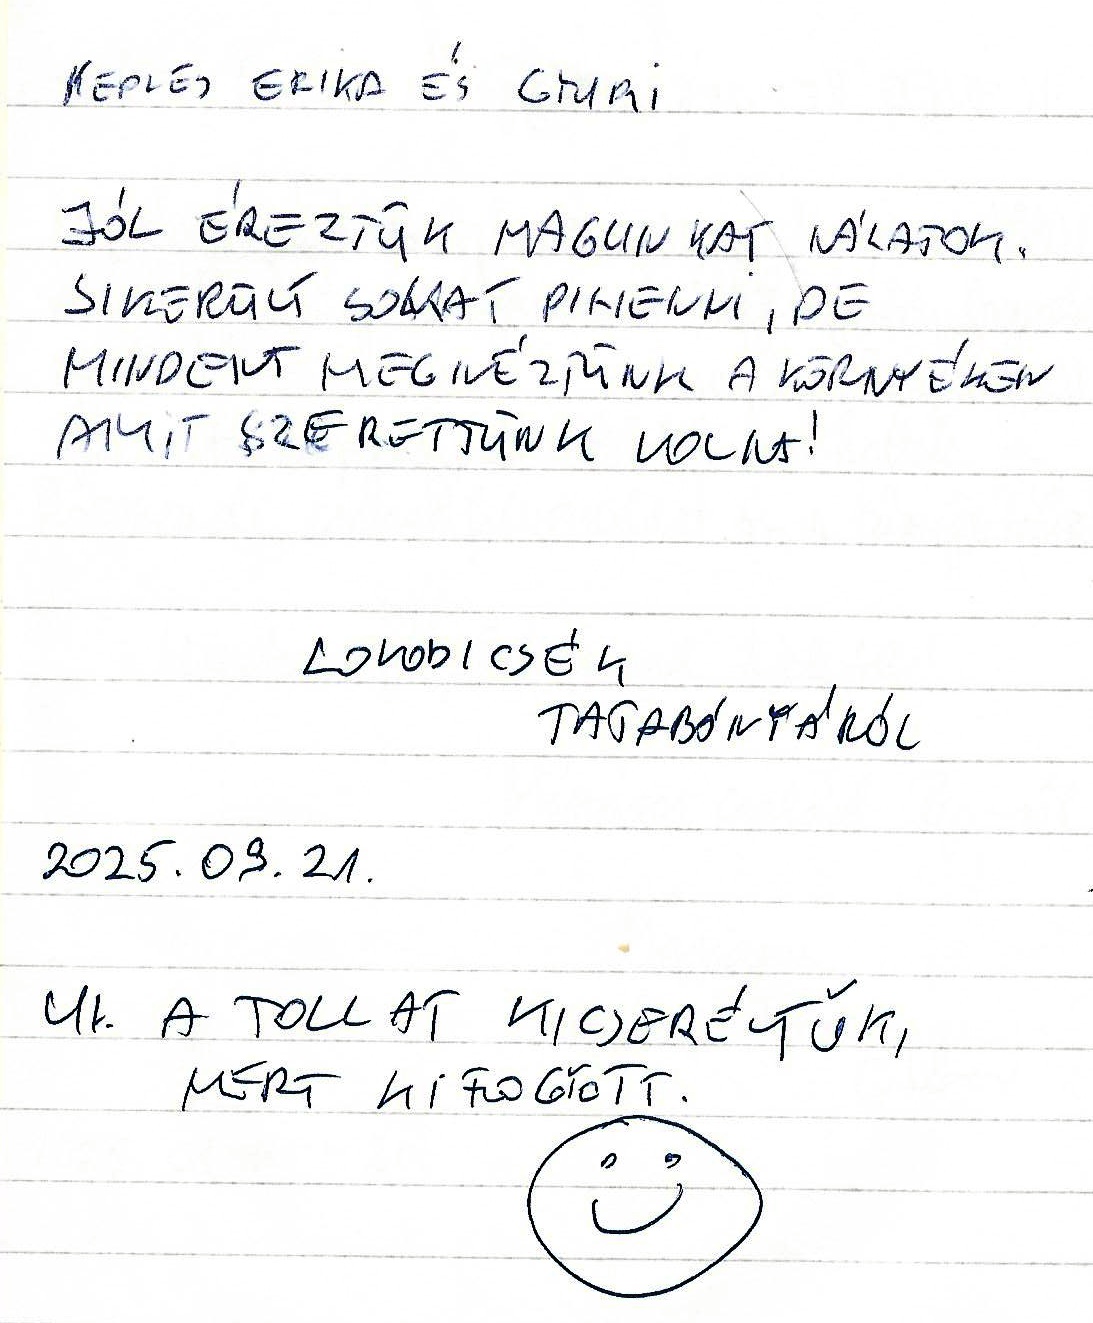 KEDVES ERIKA ÉS GYURI
JÓL ÉREZTÜK MAGUNKAT NÁLATOK.
SIKERÜLT SOKAT PIHENNI, DE
MINDENT MEGNÉZTÜNK A KÖRNYÉKEN
AMIT SZERETTÜNK VOLNA!
LOVODICSÉK
TATABÁNYÁRÓL
2025.09.21.
Ui. A TOLLAT KICSERÉLTÜK,
MERT KIFOGYOTT.